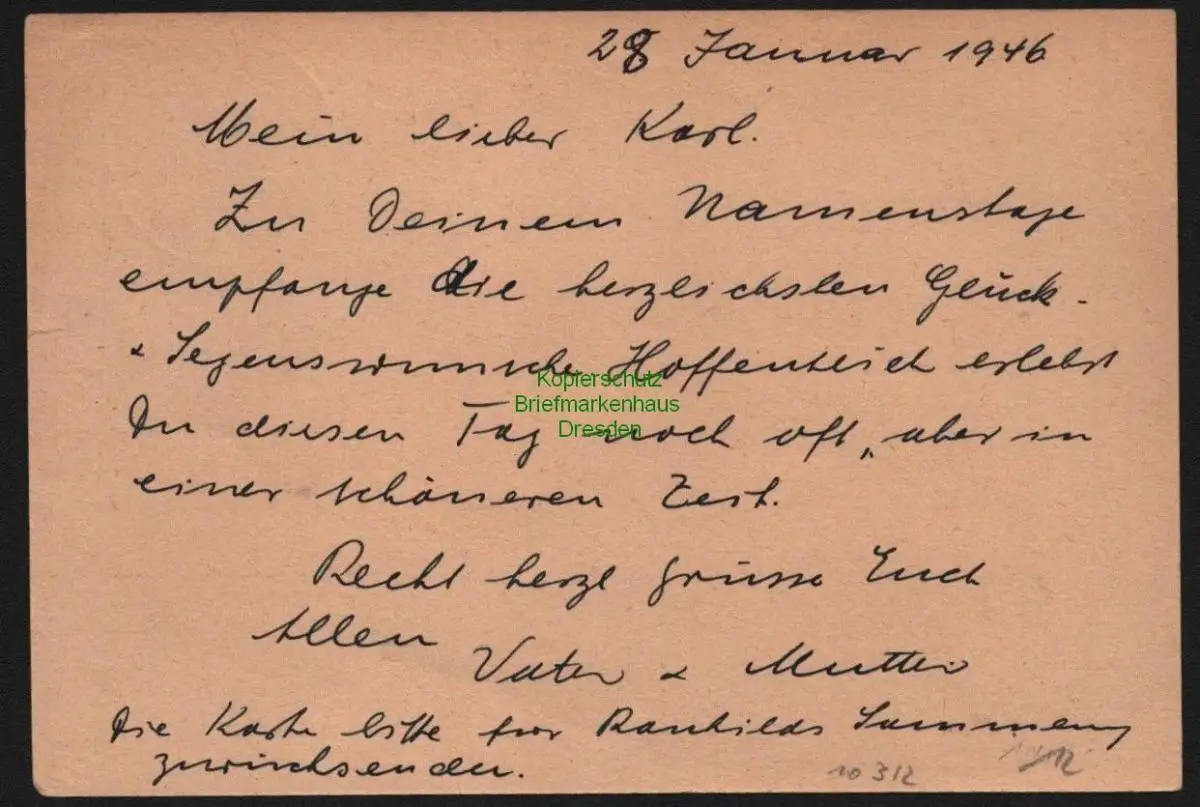 28 Januar 1946
Mein lieber Karl.
Zu Deinem Namenstage
empfange die herzlichsten Glück-
& Segenswünsche Hoffentlich erlebst
Du diesen Tag noch oft, aber in
einer schöneren Zeit.
Recht herzl Grüsse Euch
Allen
Vater & Mutter
Die Karte bitte für Ranhilds Sammlung
zurücksenden.
10 312
Kopierschutz
Briefmarkenhaus
Dresden